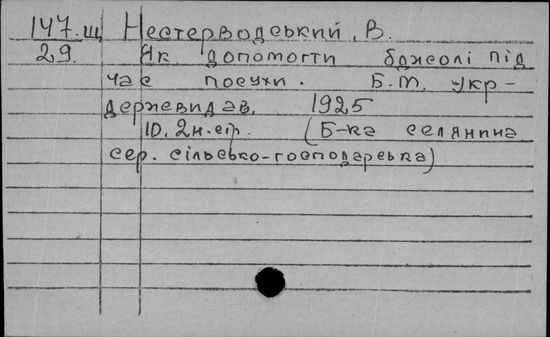 147.щ Нестерводський, В.
29. Як допомогти бджолі під
час посухи. Б.М. укр-
держвидав, 1925
10, 2н.стр. (Б-ка селянина
сер. сільсько-господарська)